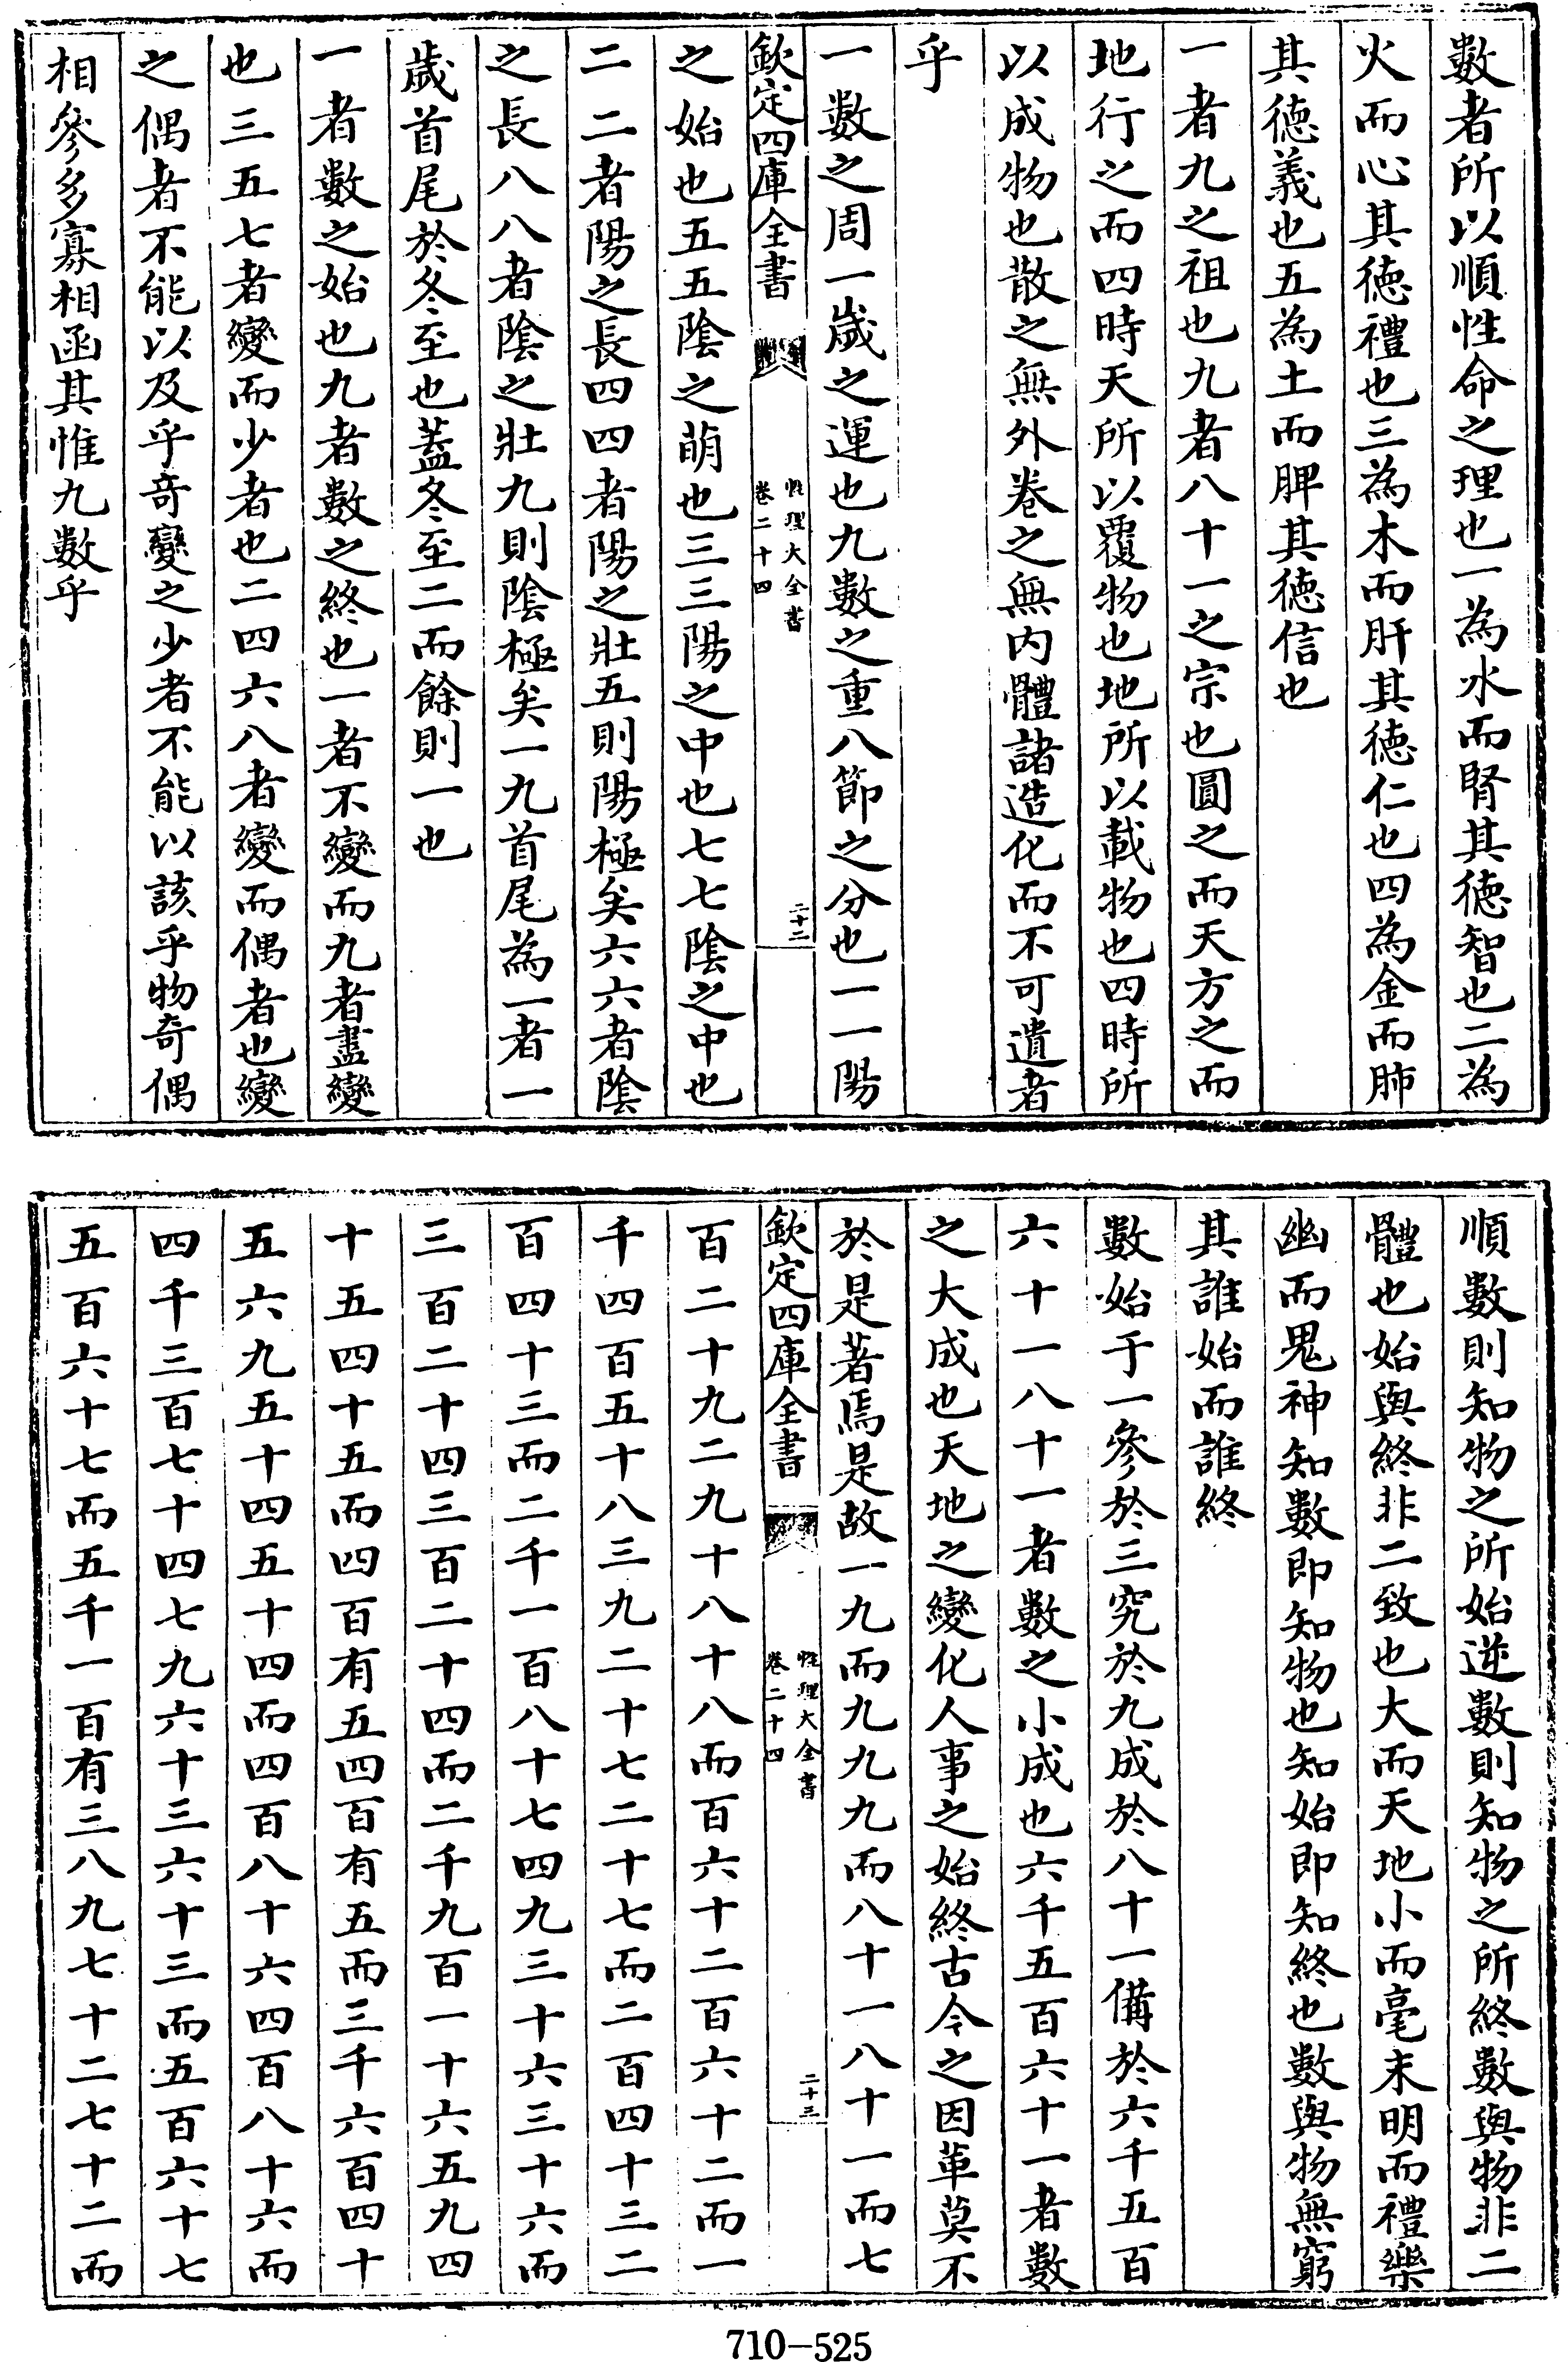 數者所以順性命之理也一為水而腎其徳智也二為
火而心其徳禮也三為木而肝其徳仁也四為金而肺
其徳義也五為土而脾其徳信也
一者九之祖也九者八十一之宗也圓之而天方之而
地行之而四時天所以覆物也地所以載物也四時所
以成物也散之無外卷之無内體諸造化而不可遺者
乎
一數之周一歲之運也九數之重八節之分也一一陽
欽定四庫全書
性理大全書
卷二十四
二十二
之始也五五陰之萌也三三陽之中也七七陰之中也
二二者陽之長四四者陽之壯五則陽極矣六六者陰
之長八八者陰之壯九則陰極矣一九首尾為一者一
歲首尾於冬至也蓋冬至二而餘則一也
一者數之始也九者數之終也一者不變而九者盡變
也三五七者變而少者也二四六八者變而偶者也變
之偶者不能以及乎竒變之少者不能以該乎物奇偶
相參多寡相函其惟九數乎
順數則知物之所始逆數則知物之所終數與物非二
體也始與終非二致也大而天地小而毫末明而禮樂
幽而鬼神知數即知物也知始即知終也數與物無窮
其誰始而誰終
數始于一參於三究於九成於八十一備於六千五百
六十一八十一者數之小成也六千五百六十一者數
之大成也天地之變化人事之始終古今之因革莫不
於是著焉是故一九而九九九而八十一八十一而七
欽定四庫全書
性理大全書
卷二十四
二十三
百二十九二九十八十八而百六十二百六十二而一
千四百五十八三九二十七二十七而二百四十三二
百四十三而二千一百八十七四九三十六三十六而
三百二十四三百二十四而二千九百一十六五九四
十五四十五而四百有五四百有五而三千六百四十
五六九五十四五十四而四百八十六四百八十六而
四千三百七十四七九六十三六十三而五百六十七
五百六十七而五千一百有三八九七十二七十二而
710-525